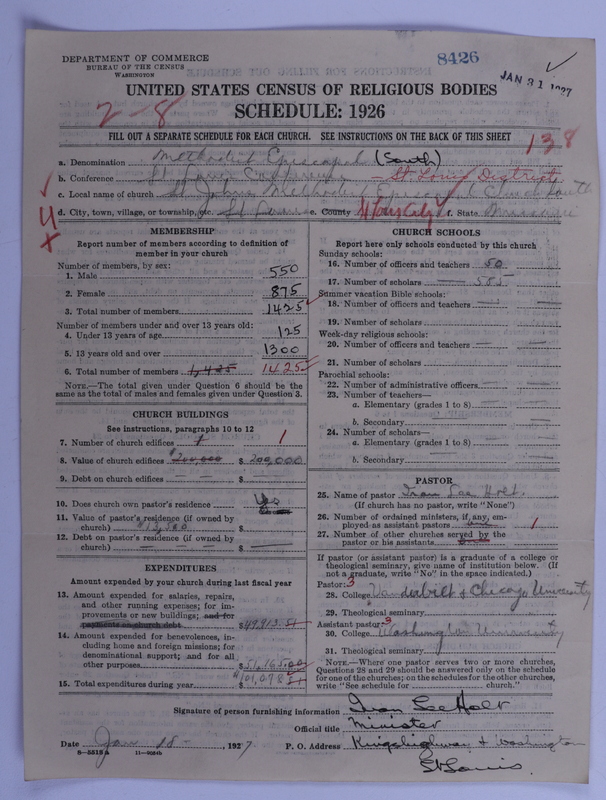 DEPARTMENT OF COMMERCE
BUREAU OF THE CENSUS
WASHINGTON
8426
JAN 31 1927
UNITED STATES CENSUS OF RELIGIOUS BODIES
SCHEDULE: 1926
2-8
138
FILL OUT A SEPARATE SCHEDULE FOR EACH CHURCH. SEE INSTRUCTIONS ON THE BACK OF THIS SHEET
a. Denomination Methodist Episcopal (South)
b. Conference St Louis Conference - St. Louis District
c. Local name of church St Johns Methodist Episcopal Church South
d. City, town, village, or township, etc. St Louis e. County St Louis City f. State Missouri
MEMBERSHIP
Report number of members according to definition of
member in your church
Number of members, by sex:
1. Male 550
2. Female 875
3. Total number of members 1425
Number of members under and over 13 years old:
4. Under 13 years of age 125
5. 13 years old and over 1300
6. Total number of members 1,425 1425
NOTE.—The total given under Question 6 should be the
same as the total of males and females given under Question 3.
CHURCH BUILDINGS
See instructions, paragraphs 10 to 12
7. Number of church edifices 1 1
8. Value of church edifices $200,000 $ 200,000
9. Debt on church edifices $
10. Does church own pastor's residence Yes
11. Value of pastor's residence (if owned by
church) $
12. Debt on pastor's residence (if owned by
church) $
EXPENDITURES
Amount expended by your church during last fiscal year
13. Amount expended for salaries, repairs,
and other running expenses; for im-
provements or new buildings; and for
payments on church debt $49,913.51
14. Amount expended for benevolences, in-
cluding home and foreign missions; for
denominational support; and for all
other purposes $51,165.00
15. Total expenditures during year $101,078.51
CHURCH SCHOOLS
Report here only schools conducted by this church
Sunday schools:
16. Number of officers and teachers 50
17. Number of scholars 585
Summer vacation Bible schools:
18. Number of officers and teachers
19. Number of scholars
Week-day religious schools:
20. Number of officers and teachers
21. Number of scholars
Parochial schools:
22. Number of administrative officers
23. Number of teachers—
a. Elementary (grades 1 to 8)
b. Secondary
24. Number of scholars—
a. Elementary (grades 1 to 8)
b. Secondary
PASTOR
25. Name of pastor Ivan Lee Holt
(If church has no pastor, write "None")
26. Number of ordained ministers, if any, em-
ployed as assistant pastors one 1
27. Number of other churches served by the
pastor or his assistants
If pastor (or assistant pastor) is a graduate of a college or
theological seminary, give name of institution below. (If
not a graduate, write "No" in the space indicated.)
Pastor: 3
28. College Vanderbilt & Chicago University
29. Theological seminary
Assistant pastor: 3
30. College Washington University
31. Theological seminary
NOTE.—Where one pastor serves two or more churches,
Questions 28 and 29 should be answered only on the schedule
for one of the churches; on the schedules for the other churches,
write "See schedule for church."
Signature of person furnishing information Ivan Lee Holt
Official title Minister
Date Jan 18 1927 P. O. Address Kingshighway & Washington
St Louis
8—5515 a